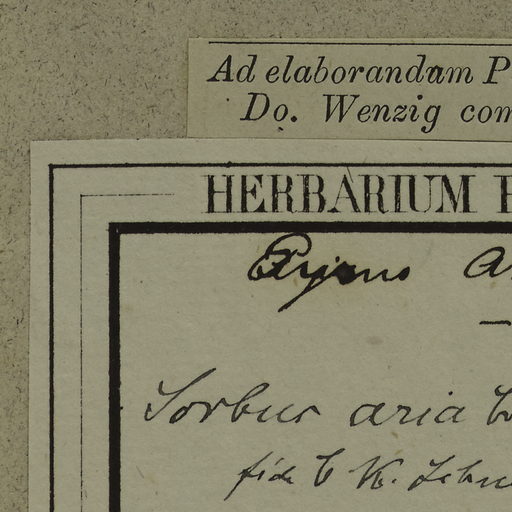 Ad elaborandam P
Do. Wenzig com
HERBARIUM
Pyrus a
Sorbus aria
fide C K. Schn